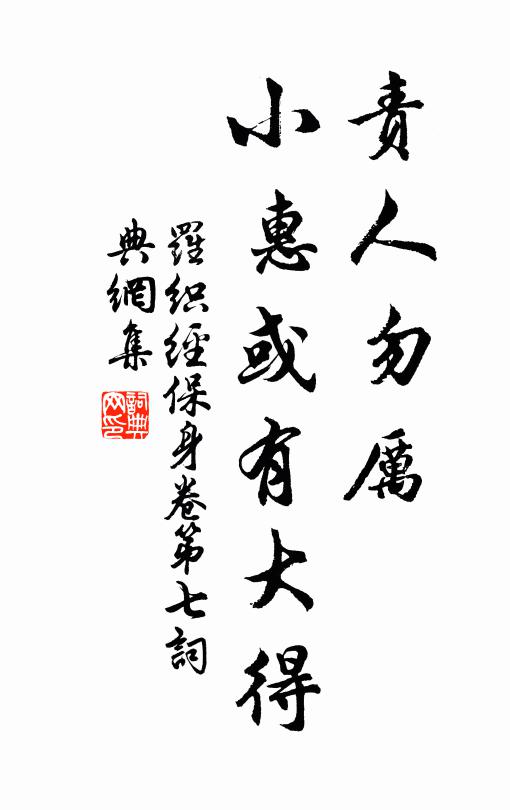 責人勿厲
小惠或有大得
羅織經保身卷第七詞
典網集
詞典
网印